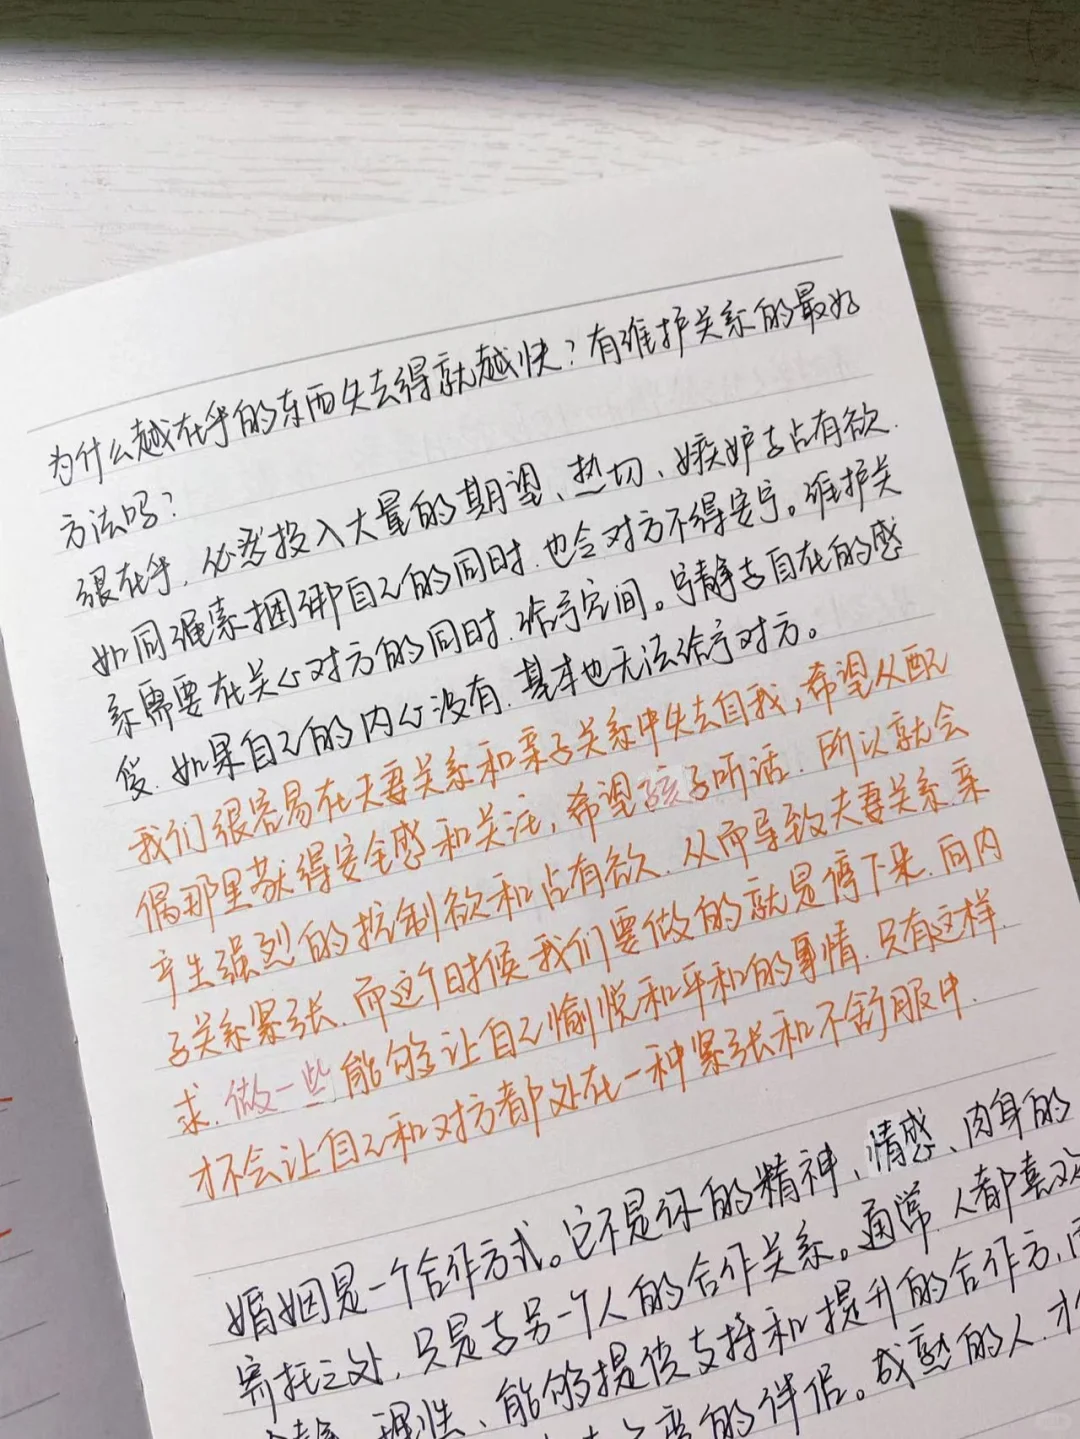 为什么越在乎的东西失去得就越快？有维护关系的最好
方法吗？
很在乎，必然投入大量的期望、热切、嫉妒与占有欲，
如同绳索捆绑自己的同时，也令对方不得安宁。维护关
系需要在关心对方的同时，给予空间。宁静与自在的感
受，如果自己的内心没有，基本也无法给予对方。
我们很容易在夫妻关系和亲子关系中失去自我，希望从配
偶那里获得安全感和关注，希望孩子听话，所以就会
产生强烈的控制欲和占有欲，从而导致夫妻关系、亲
子关系紧张，而这个时候我们要做的就是停下来，向内
求，做一些能够让自己愉悦和平和的事情，只有这样，
才不会让自己和对方都处在一种紧张和不舒服中。
婚姻是一个合作方式。它不是你的精神、情感、肉身的
寄托之处，只是与另一个人的合作关系。通常，人都喜欢
静、理性、能够提供支持和提升的合作方，而
的伴侣。成熟的人，才